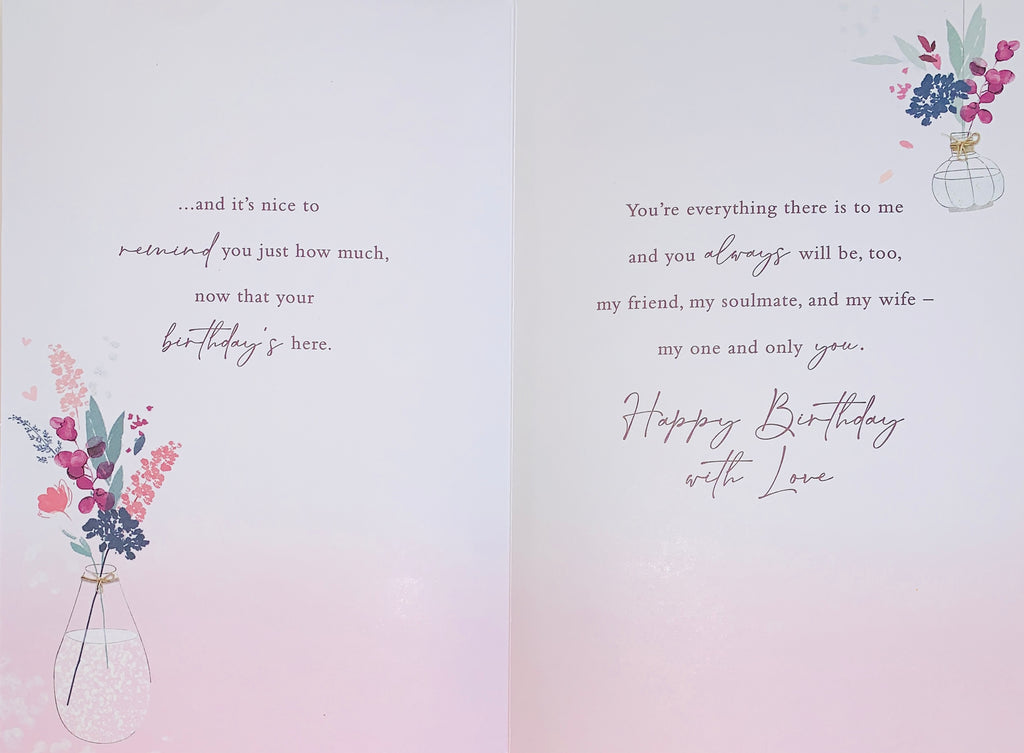 ...and it's nice to
remind you just how much,
now that your
birthday's here.
You're everything there is to me
and you always will be, too,
my friend, my soulmate, and my wife –
my one and only you.
Happy Birthday
with Love